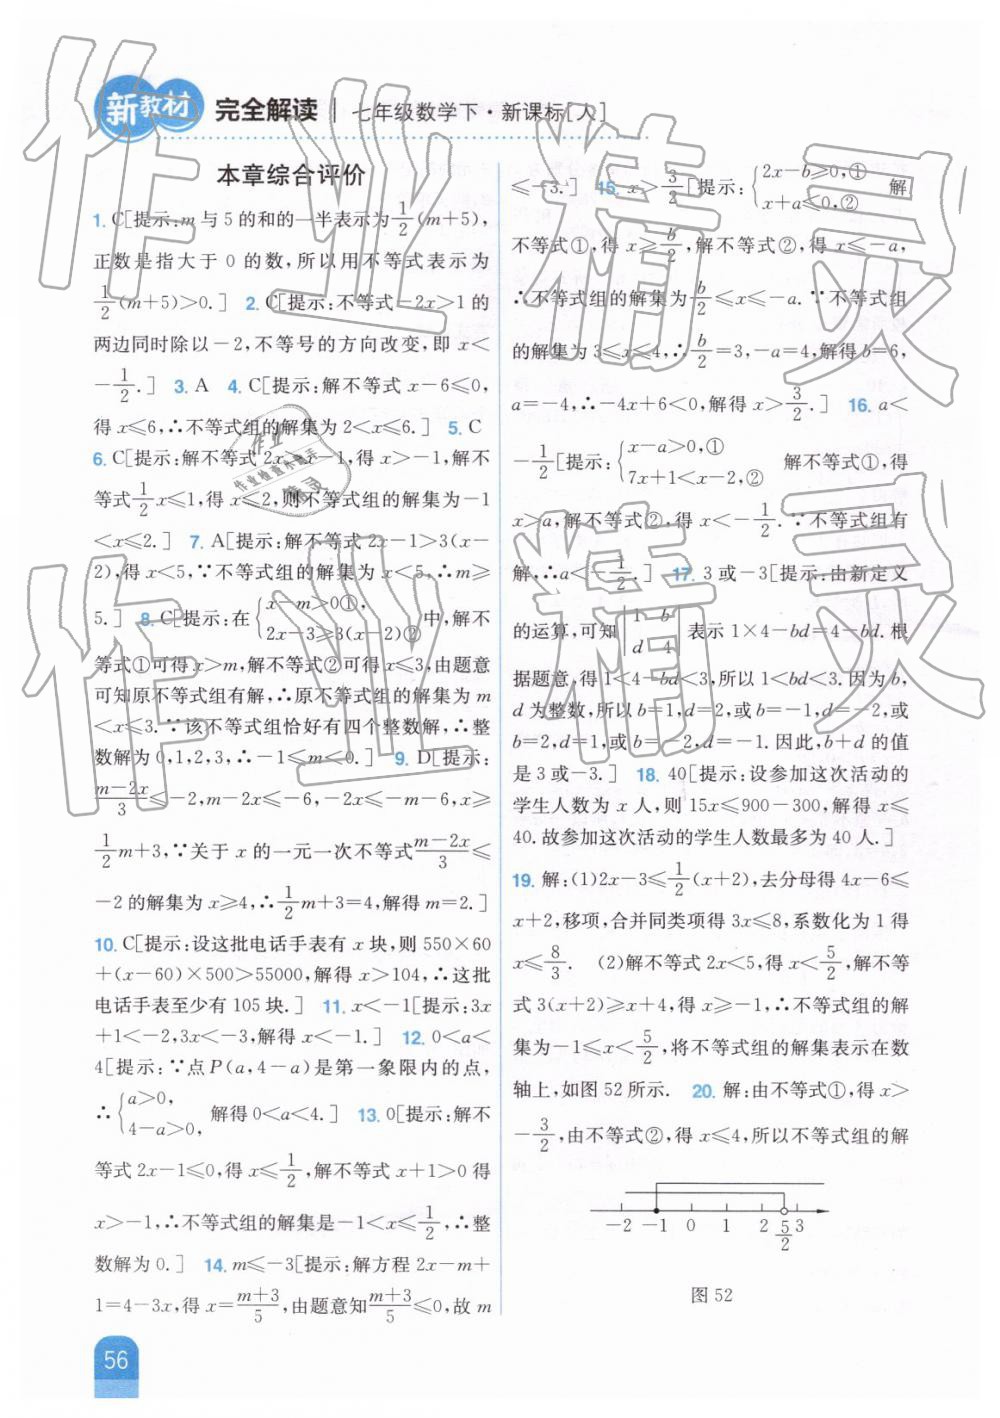 新教材 完全解读 七年级数学下·新课标[人]
本章综合评价
1. C[提示:m 与 5 的和的一半表示为1/2(m+5),
正数是指大于 0 的数,所以用不等式表示为
1/2(m+5)>0.] 2. C[提示:不等式-2x>1 的
两边同时除以-2,不等号的方向改变,即 x<
-1/2.] 3. A 4. C[提示:解不等式 x-6⩽0,
得 x⩽6,∴不等式组的解集为 2<x⩽6.] 5. C
6. C[提示:解不等式 2x>x-1,得 x>-1,解不
等式1/2x⩽1,得 x⩽2,则不等式组的解集为-1
<x⩽2.] 7. A[提示:解不等式 2x-1>3(x-
2),得 x<5,∵不等式组的解集为 x<5,∴m⩾
5.] 8. C[提示:在{x-m>0①, 2x-3⩾3(x-2)②中,解不
等式①可得 x>m,解不等式②可得 x⩽3,由题意
可知原不等式组有解,∴原不等式组的解集为 m
<x⩽3.∵该不等式组恰好有四个整数解,∴整
数解为 0,1,2,3,∴-1⩽m<0.] 9. D[提示:
(m-2x)/3⩽-2,m-2x⩽-6,-2x⩽-m-6,x⩾
1/2m+3,∵关于 x 的一元一次不等式(m-2x)/3⩽
-2 的解集为 x⩾4,∴1/2m+3=4,解得 m=2.]
10. C[提示:设这批电话手表有 x 块,则 550×60
+(x-60)×500>55000,解得 x>104,∴这批
电话手表至少有 105 块.] 11. x<-1[提示:3x
+1<-2,3x<-3,解得 x<-1.] 12. 0<a<
4[提示:∵点 P(a,4-a)是第一象限内的点,
∴{a>0, 4-a>0, 解得 0<a<4.] 13. 0[提示:解不
等式 2x-1⩽0,得 x⩽1/2,解不等式 x+1>0 得
x>-1,∴不等式组的解集是-1<x⩽1/2,∴整
数解为 0.] 14. m⩽-3[提示:解方程 2x-m+
1=4-3x,得 x=(m+3)/5,由题意知(m+3)/5⩽0,故 m
⩽-3.] 15. x>3/2[提示:{2x-b⩾0,① x+a⩽0,② 解
不等式①,得 x⩾b/2,解不等式②,得 x⩽-a,
∴不等式组的解集为b/2⩽x⩽-a.∵不等式组
的解集为 3⩽x⩽4,∴b/2=3,-a=4,解得 b=6,
a=-4,∴-4x+6<0,解得 x>3/2.] 16. a<
-1/2[提示:{x-a>0,① 7x+1<x-2,② 解不等式①,得
x>a,解不等式②,得 x<-1/2.∵不等式组有
解,∴a<-1/2.] 17. 3 或-3[提示:由新定义
的运算,可知|1 b d 4|表示 1×4-bd=4-bd. 根
据题意,得 1<4-bd<3,所以 1<bd<3.因为 b,
d 为整数,所以 b=1,d=2,或 b=-1,d=-2,或
b=2,d=1,或 b=-2,d=-1.因此,b+d 的值
是 3 或-3.] 18. 40[提示:设参加这次活动的
学生人数为 x 人,则 15x⩽900-300,解得 x⩽
40.故参加这次活动的学生人数最多为 40 人.]
19. 解:(1)2x-3⩽1/2(x+2),去分母得 4x-6⩽
x+2,移项,合并同类项得 3x⩽8,系数化为 1 得
x⩽8/3. (2)解不等式 2x<5,得 x<5/2,解不等
式 3(x+2)⩾x+4,得 x⩾-1,∴不等式组的解
集为-1⩽x<5/2,将不等式组的解集表示在数
轴上,如图 52 所示. 20. 解:由不等式①,得 x>
-3/2,由不等式②,得 x⩽4,所以不等式组的解
-2 -1 0 1 2 5/2 3
图 52
56
作业精灵
作业精灵
作业
作业检查小能手
精灵